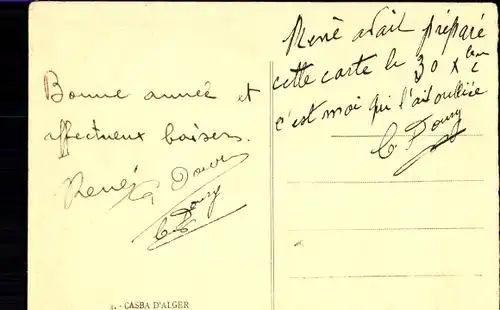 Bonne année et
affectueux baisers.
René
René avait préparé
cette carte le 30 Xbre
c'est moi qui l'ait oubliée
CASBA D'ALGER